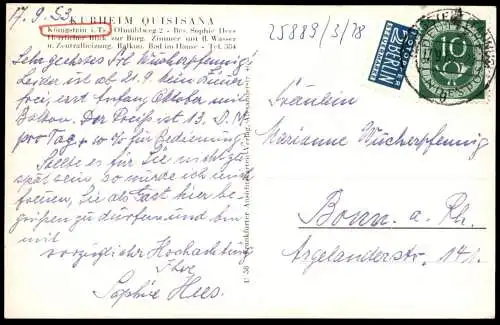 17.9.53
KURHEIM QUISISANA
Königstein i. Ts. Ölmühlweg 2 - Bes. Sophie Hees
Herrlicher Blick zur Burg. Zimmer mit fl. Wasser
u. Zentralheizung. Balkon. Bad im Hause - Tel. 354
Sehr geehrtes Frl. Wucherpfennig!
Leider ist ab 21.9. kein Zimmer
frei, erst Anfang Oktober mit
Balkon. Der Preis ist 13. D.M.
pro Tag + % für Bedienung.
Sollte es für Sie nicht zu
spät sein, so würde ich mich
freuen, Sie als Gast hier be-
grüßen zu dürfen und bin
mit
vorzüglicher Hochachtung
Ihre
Sophie Hees.
U 56 Frankfurter Ansichtskarten-Verlag
25889/3/78
NOTOPFER
2 BERLIN
STEUERMARKE
10
DEUTSCHE BUNDESPOST
Fräulein
Marianne Wucherpfennig
Bonn a. Rh.
Argelanderstr. 51.